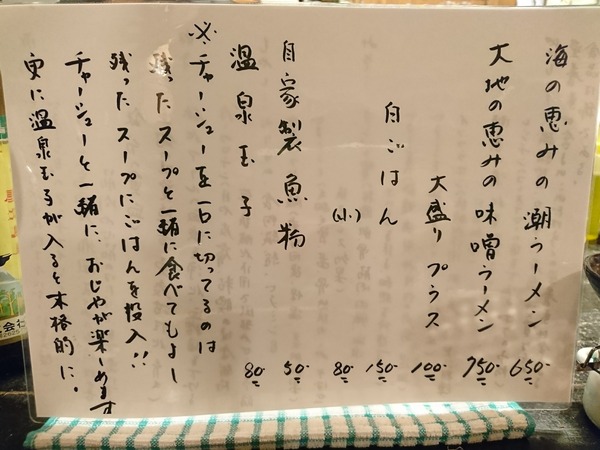 海の恵みの潮ラーメン 650-
大地の恵みの味噌ラーメン 750-
大盛りプラス 100-
白ごはん 150-
(小) 80-
自家製魚粉 50-
温泉玉子 80-
※チャーシューを一口に切ってるのは
残ったスープと一緒に食べてもよし
残ったスープにごはんを投入!!
チャーシューと一緒に、おじやが楽しめます
更に温泉玉子が入ると本格的に。